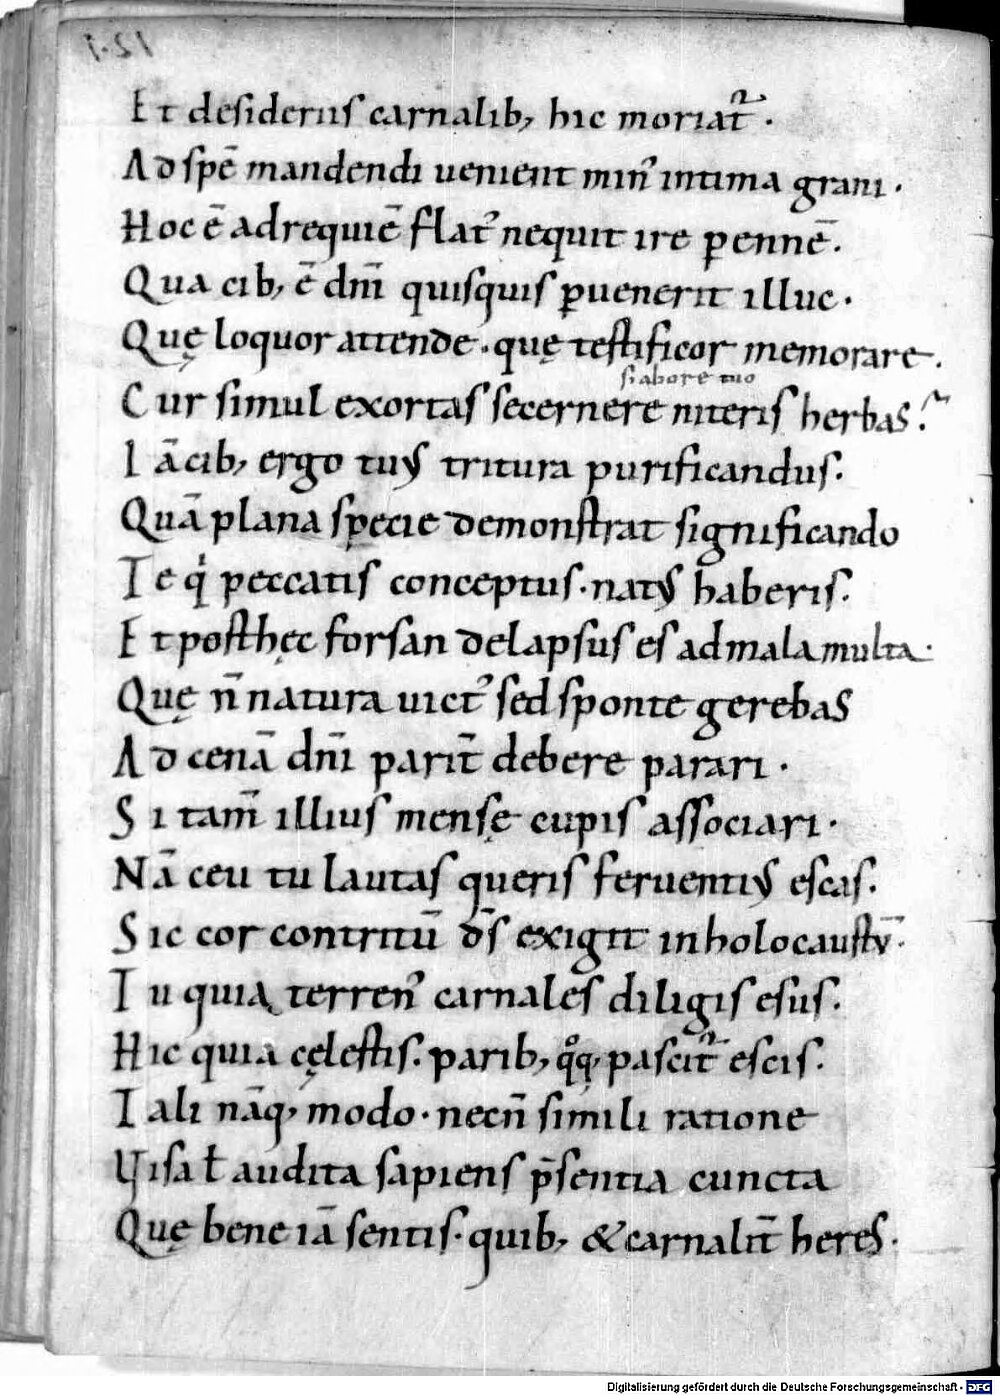 Et desideriis carnalib; hic moriat᷑ .
Ad spē mandendi uenient min᾿ intima grani .
Hoc ē ad requiē flat᾿ nequit ire ꝑennē .
Qua cib; ē dn̄i quisquis ꝑuenerit illuc .
Quę loquor attende . quę testificor memorare .
s; labore tuo
Cur simul exortas secernere niteris herbas ?
Iā cib; ergo tuꝰ tritura purificandus .
Quā plana specie demonstrat significando
Te qͥ peccatis conceptus . natꝰ haberis .
Et posthęc forsan delapsus es ad mala multa .
Quę n̄ natura uict᾿ sed sponte gerebas
Ad cenā dn̄i parit̄ debere parari .
Si tam̄ illius mensę cupis associari .
Nā ceu tu lautas queris feruentiꝰ escas .
Sic cor contritū d̄s exigit in holocaustū .
Tu quia terren᾿ carnales diligis esus .
Hic quia cęlestis . parib; qͦq; pascit᷑ escis .
Tali nāq; modo . necn̄ simili ratione
Visa ł audita sapiens p̄sentia cuncta
Quę bene iā sentis . quib; & carnalit̄ heres .
Digitalisierung gefördert durch die Deutsche Forschungsgemeinschaft - DFG